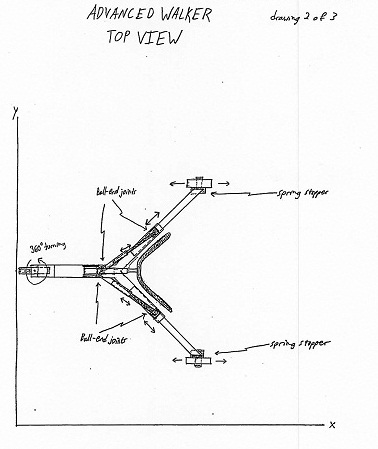 ADVANCED WALKER
TOP VIEW
drawing 2 of 3
Y
Ball-end joints
spring stopper
360° turning
Ball-end joints
spring stopper
X